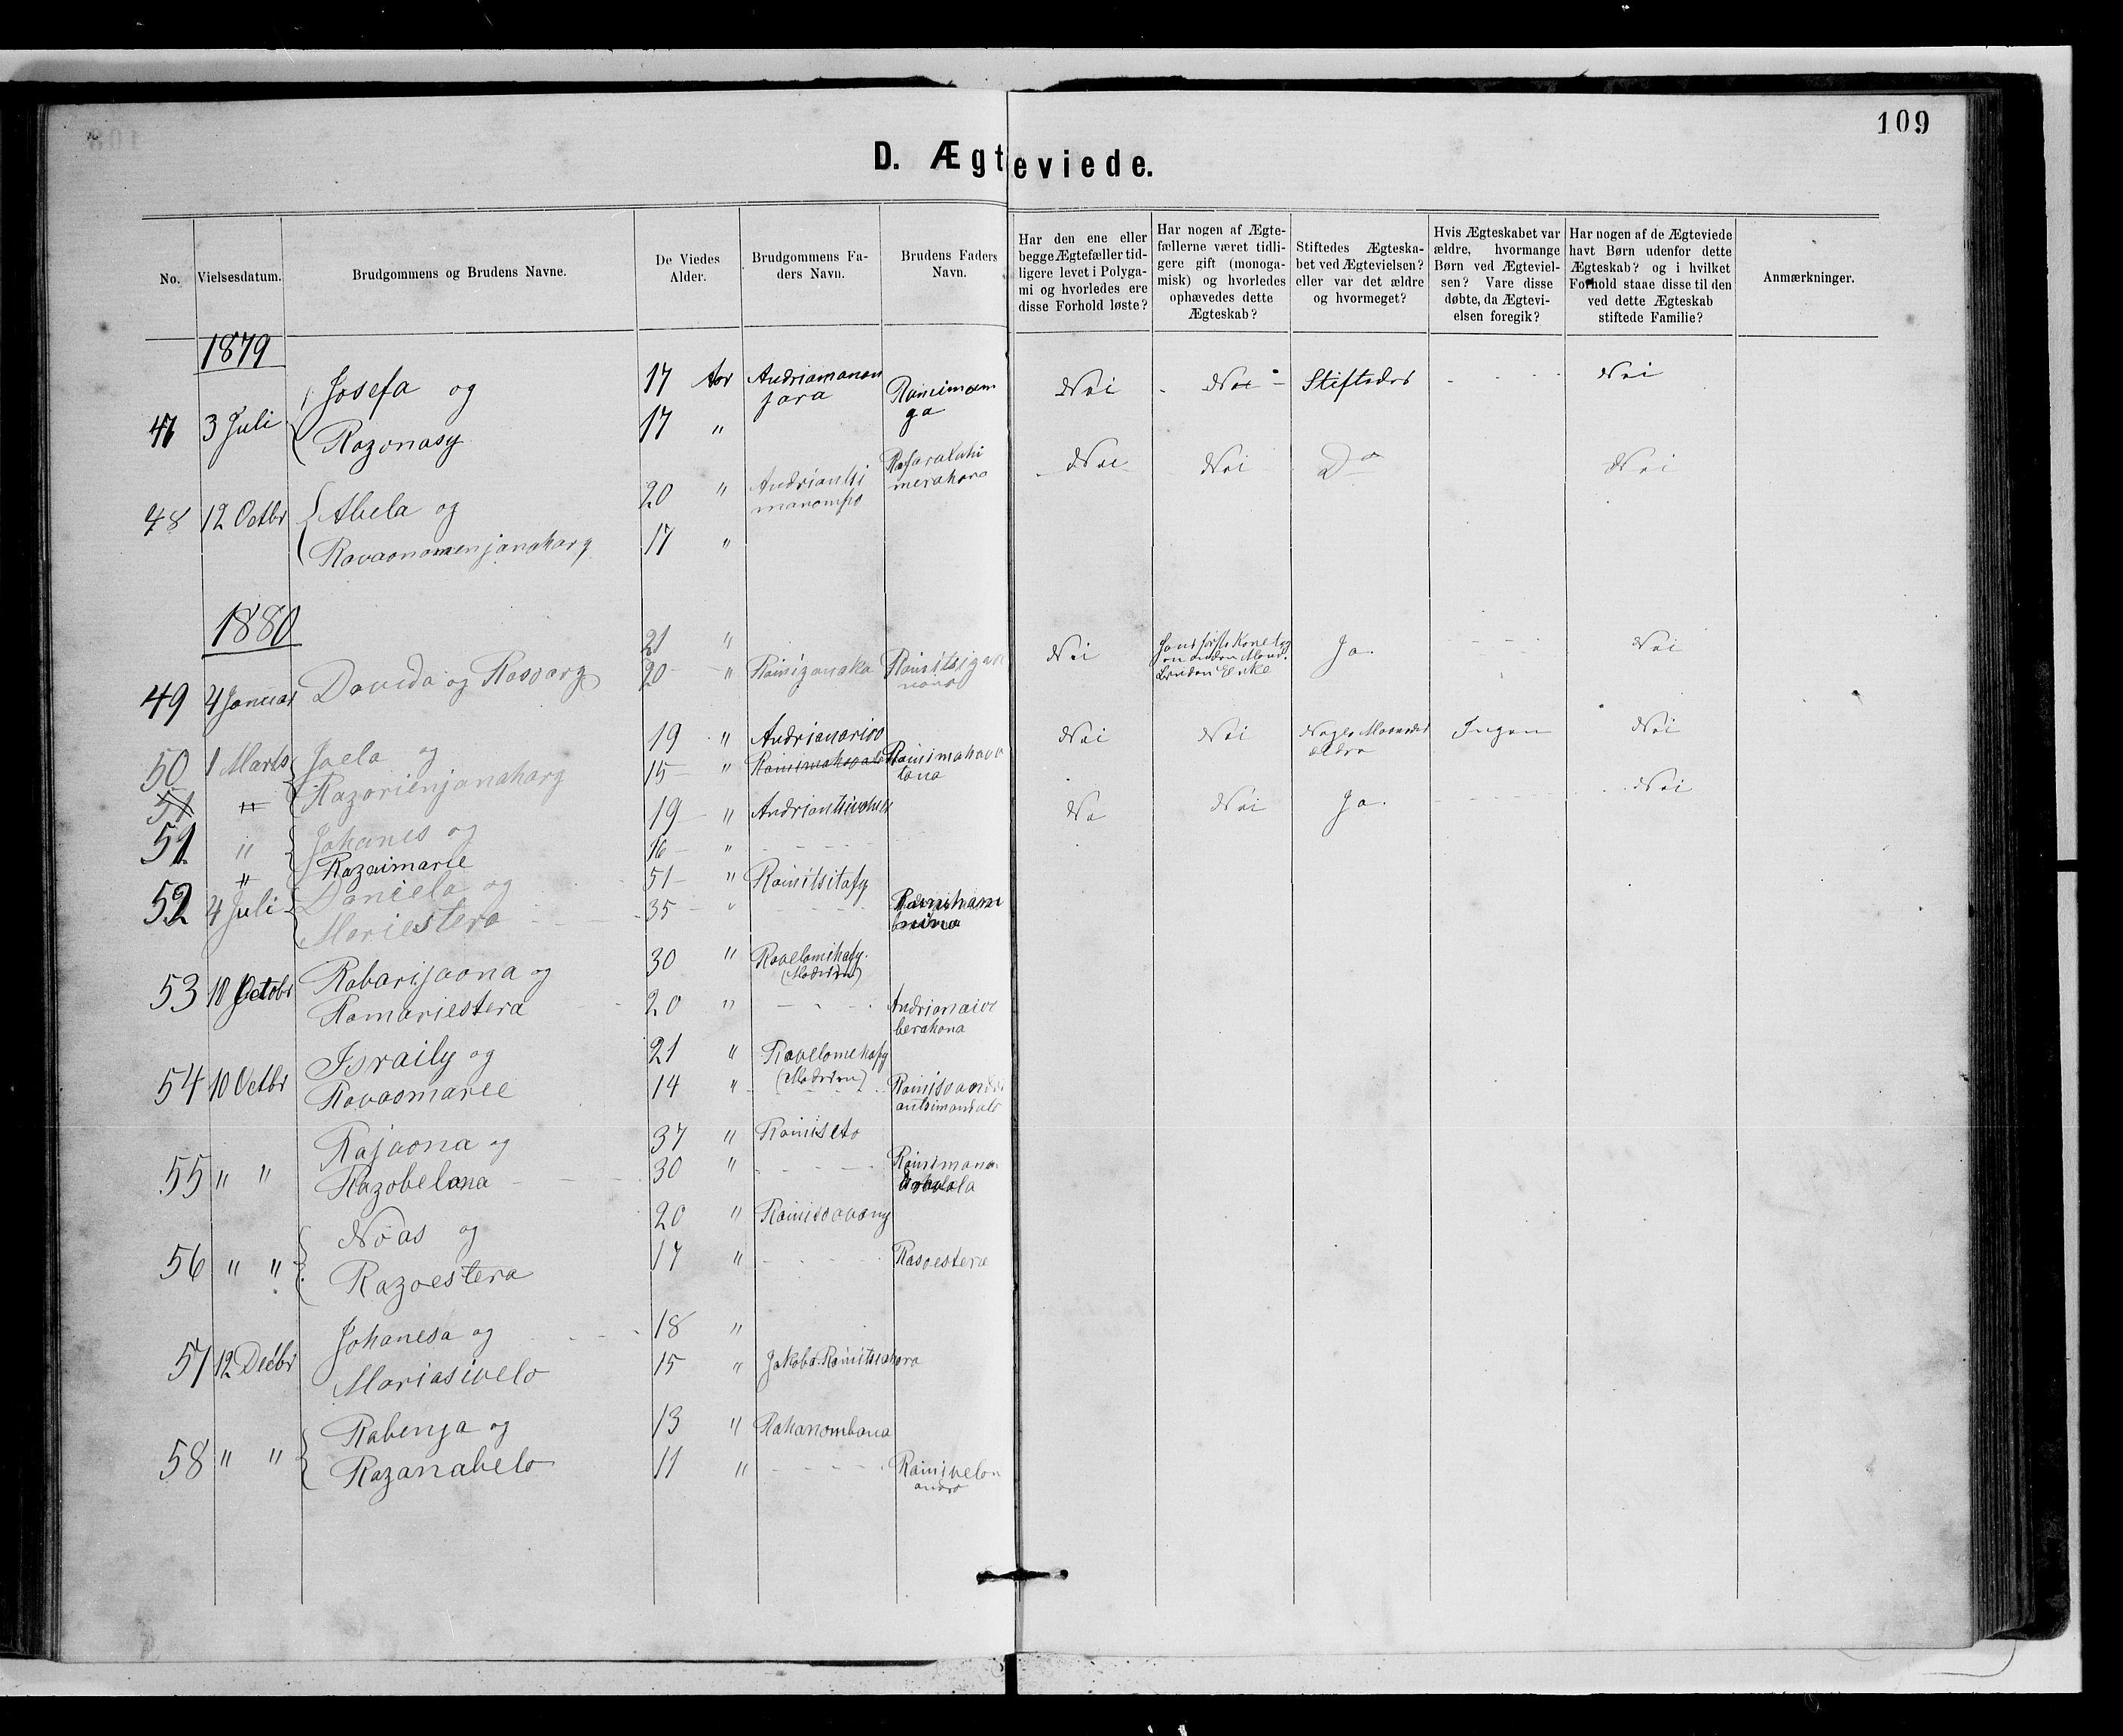 109
D. Ægteviede.
No. Vielsesdatum. Brudgommens og Brudens Navne. De Viedes Alder. Brudgommens Faders Navn. Brudens Faders Navn. Har den ene eller begge Ægtefæller tidligere levet i Polygami og hvorledes ere disse Forhold løste? Har nogen af Ægtefællerne været tidligere gift (monogamisk) og hvorledes ophævedes dette Ægteskab? Stiftedes Ægteskabet ved Ægtevielsen? eller var det ældre og hvormeget? Hvis Ægteskabet var ældre, hvormange Børn ved Ægtevielsen? Vare disse døbte, da Ægtevielsen foregik? Har nogen af de Ægteviede havt Børn udenfor dette Ægteskab? og i hvilket Forhold staae disse til den ved dette Ægteskab stiftede Familie? Anmærkninger.
1879
47 3 Juli Josefa og 17 Aar Andriamanan Nei Nei Stiftedes Nei
jara Rainiman
Razonasy 17 " ga
48 12 Octbr Abela og 20 " Andriantsi Nei Nei Do Nei
manompo merahara
Ravaonomenjanahary 17 "
1880
49 4 Januar Davida og Rasoary 21 " Nei Ja Nei
20 " Rainizanaka
50 1 Marts Joela og 19 " Andrianarivo Nei Nei Nogle Maaneder Ingen Nei
ældre
Razarienjanahary 15 " Rainimahava
tana
51 " Johanes og 19 " Nei Ja. Nei
Razaimarie 16 "
52 4 Juli Daniela og 51 " Rainitsitafy
Mariestera 35 "
53 10 Octobr Rabarijaona og 30 " Ravelomihafy
(Moderen)
Ramariestera 20 " Andrianaivo
berahona
54 10 Octbr Israily og 21 " Ravelomehafy
(Moderen)
Ravaomarie 14 "
55 " " Rajaona og 37 " Rainiseto
Razobelona 30 " Rainimana
56 " " Noas og 20 " Rainisoavony
Razoestera 17 " Rasoestera
57 12 Decbr Johanesa og 18 "
Mariasivelo 15 " Jakoba Rainitsiahora
58 " " Rabenja og 13 " Rahanombana
Razanabelo 11 " Rainivelon
andro